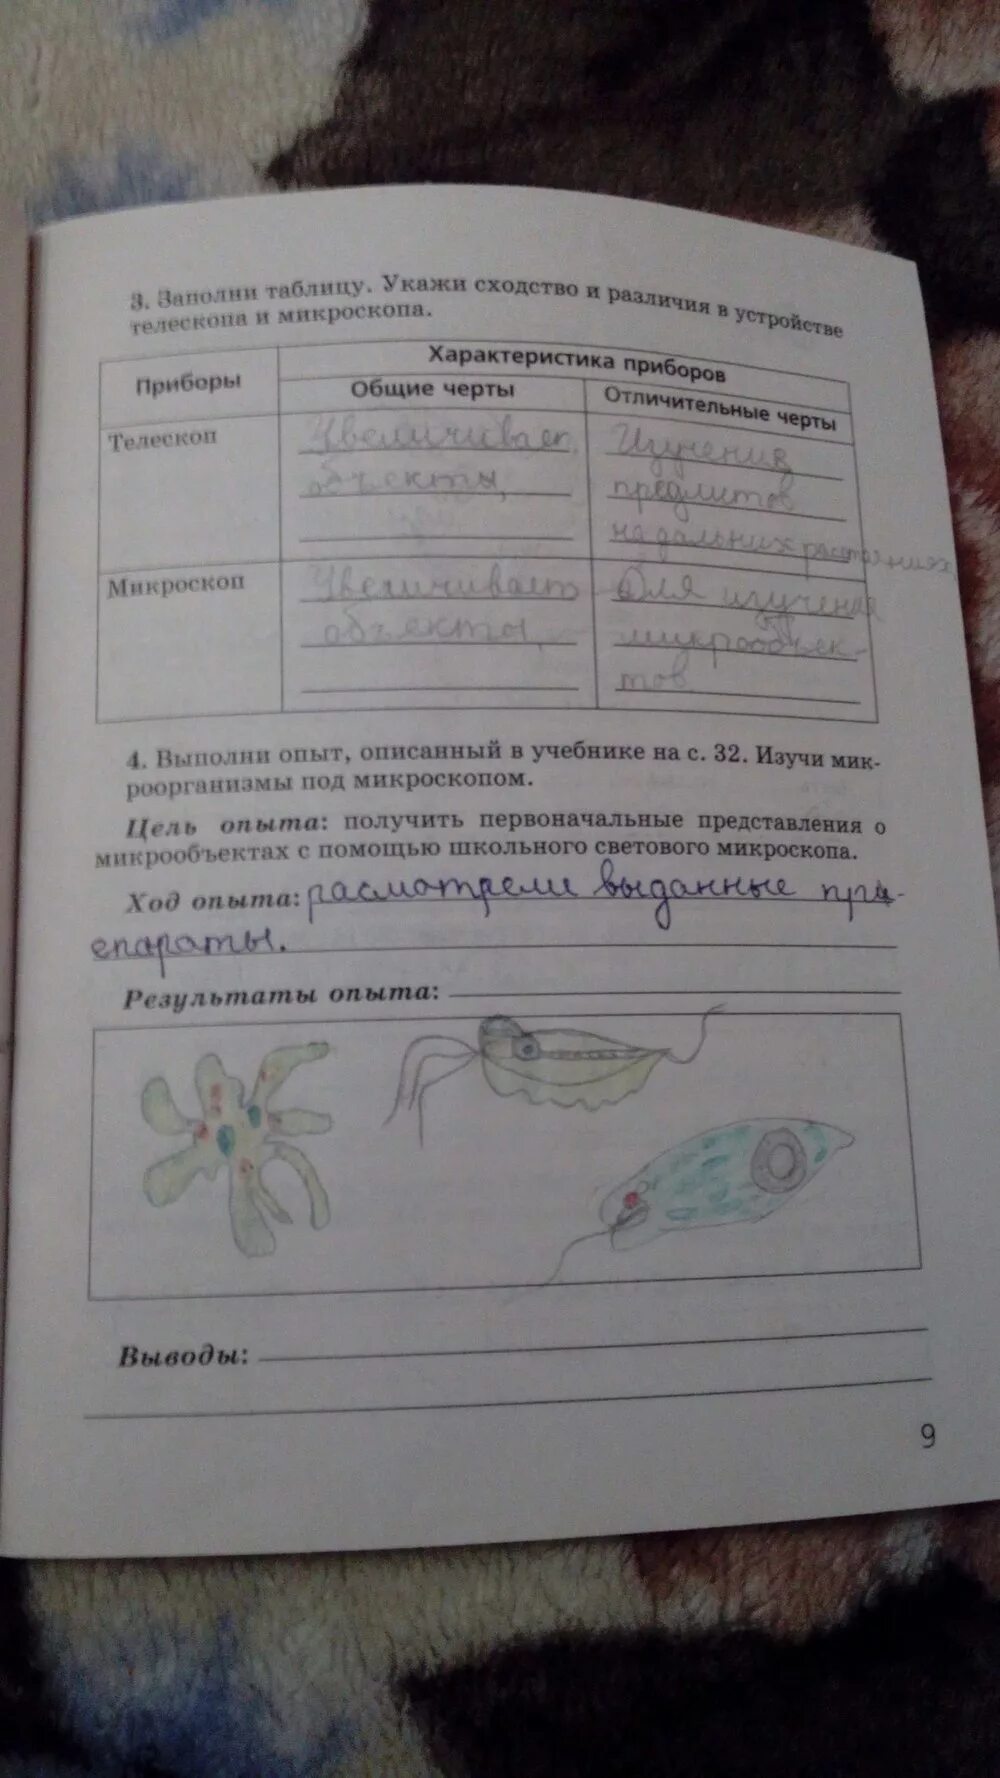 3. Заполни таблицу. Укажи сходство и различия в устройстве
телескопа и микроскопа.
Приборы
Характеристика приборов
Общие черты
Отличительные черты
Телескоп
Увеличивает
объекты,
Изучения
предмитов
на дальних расстояниях
Микроскоп
Увеличивает
объекты,
Для изучения
микрообъек-
тов
4. Выполни опыт, описанный в учебнике на с. 32. Изучи мик-
роорганизмы под микроскопом.
Цель опыта: получить первоначальные представления о
микрообъектах с помощью школьного светового микроскопа.
Ход опыта: расмотрели выданные пра-
епараты.
Результаты опыта:
Выводы:
9